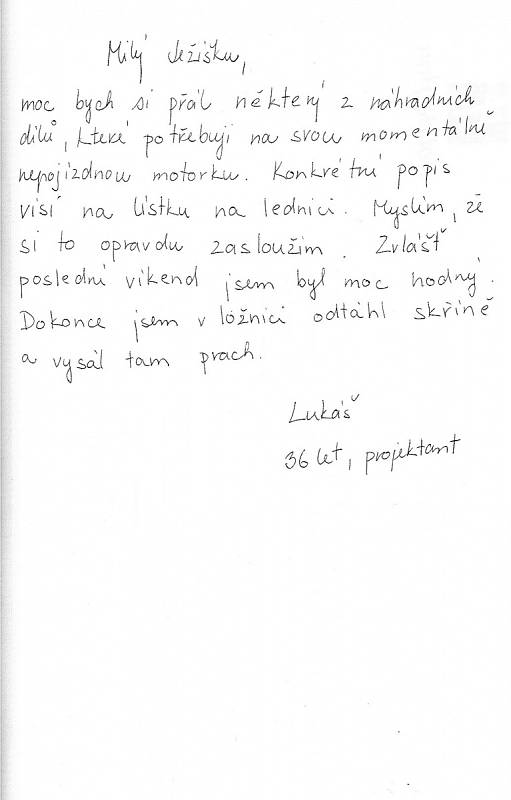 Milý Ježíšku,
moc bych si přál některý z náhradních
dílů, které potřebuji na svou momentálně
nepojízdnou motorku. Konkrétní popis
visí na lístku na lednici. Myslím, že
si to opravdu zasloužím. Zvlášť
poslední víkend jsem byl moc hodný.
Dokonce jsem v ložnici odtáhl skříně
a vysál tam prach.
Lukáš
36 let, projektant